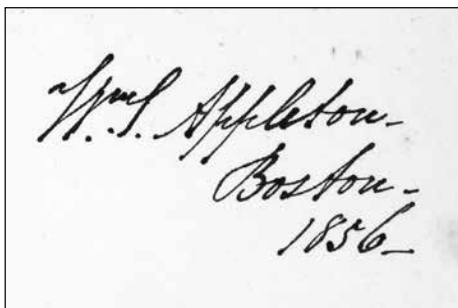 Wm. S. Appleton–
Boston–
1856–